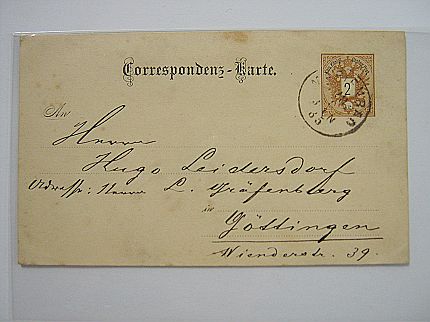 Correspondenz-Karte.
2
An
Herrn
Hugo Leidersdorf
Adresse: Herrn L. Gräfenberg
in
Göttingen
Wienderstr. 39.